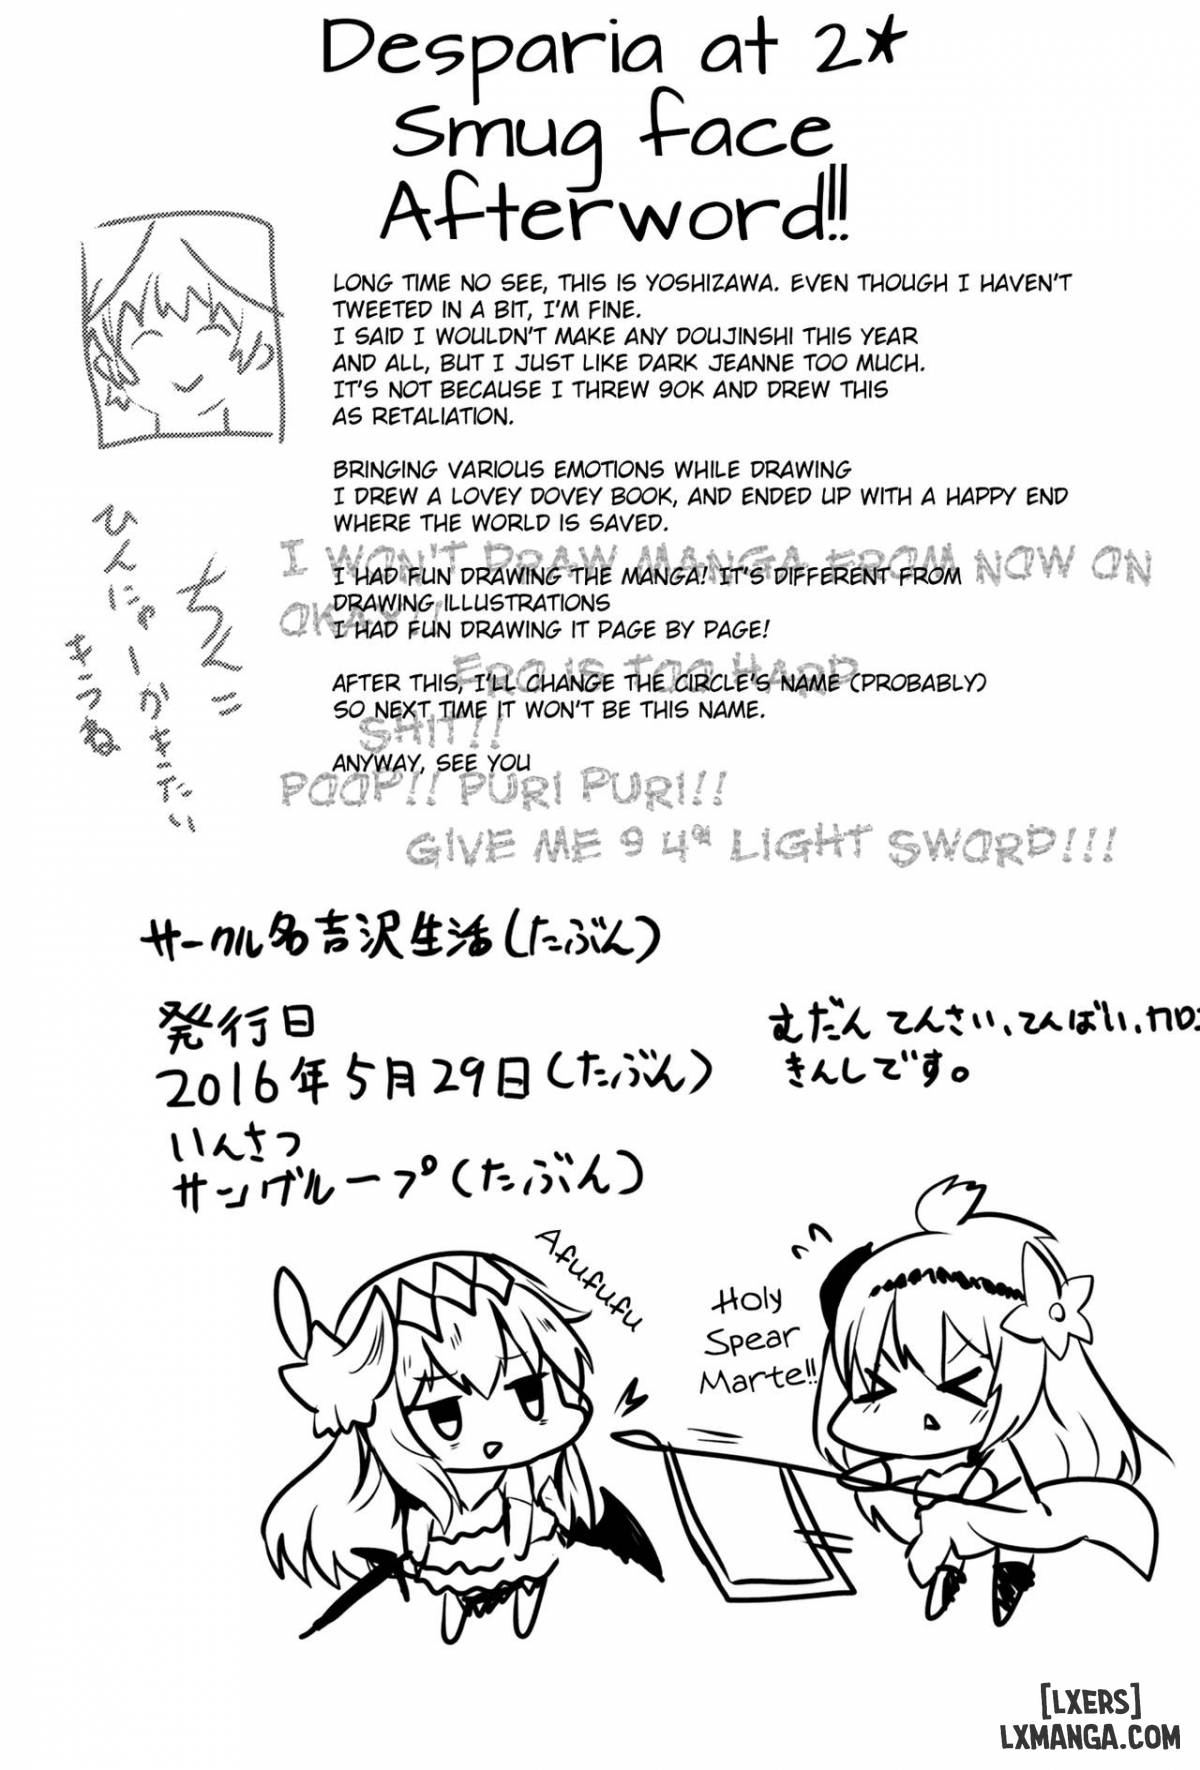 Desparia at 2★
Smug face
Afterword!!
LONG TIME NO SEE, THIS IS YOSHIZAWA. EVEN THOUGH I HAVEN'T
TWEETED IN A BIT, I'M FINE.
I SAID I WOULDN'T MAKE ANY DOUJINSHI THIS YEAR
AND ALL, BUT I JUST LIKE DARK JEANNE TOO MUCH.
IT'S NOT BECAUSE I THREW 90K AND DREW THIS
AS RETALIATION.
BRINGING VARIOUS EMOTIONS WHILE DRAWING
I DREW A LOVEY DOVEY BOOK, AND ENDED UP WITH A HAPPY END
WHERE THE WORLD IS SAVED.
I WON'T DRAW MANGA FROM NOW ON
I HAD FUN DRAWING THE MANGA! IT'S DIFFERENT FROM
DRAWING ILLUSTRATIONS
OKAY!!
I HAD FUN DRAWING IT PAGE BY PAGE!
ERO IS TOO HARD
AFTER THIS, I'LL CHANGE THE CIRCLE'S NAME (PROBABLY)
SO NEXT TIME IT WON'T BE THIS NAME.
SHIT!!
ANYWAY, SEE YOU
POOP!! PURI PURI!!
GIVE ME 9 4* LIGHT SWORD!!!
ちんこ
ひんにゅーがきたい
きつね
サークル名吉沢生活(たぶん)
発行日
2016年5月29日(たぶん)
いんさつ
サングループ(たぶん)
むだん てんさい、てんばい、カロ
きんしです。
Afufufu
Holy
Spear
Marte!!
[LXERS]
LXMANGA.COM